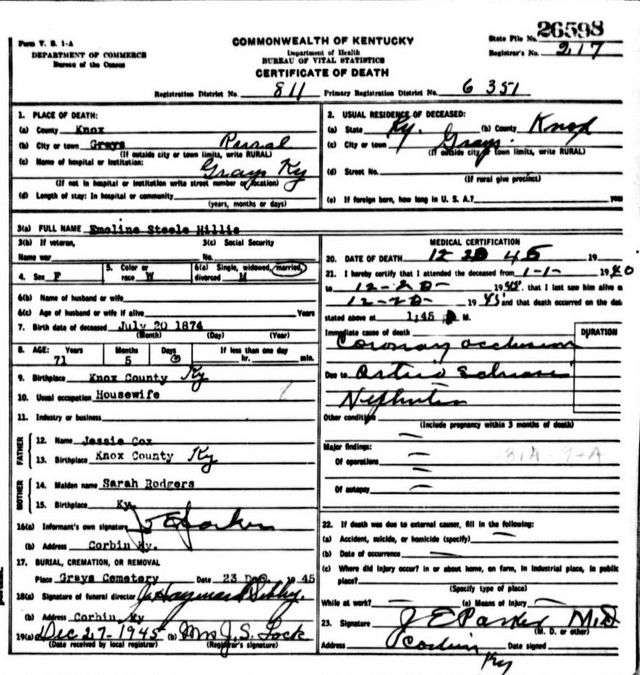 26598
Form V. S. 1-A
COMMONWEALTH OF KENTUCKY
State File No.
DEPARTMENT OF COMMERCE
Department of Health
Registrar's No. 217
Bureau of the Census
BUREAU OF VITAL STATISTICS
CERTIFICATE OF DEATH
Registration District No. 811 Primary Registration District No. 6351
1. PLACE OF DEATH:
(a) County Knox
(b) City or town Grays Rural
(If outside city or town limits, write RURAL)
(c) Name of hospital or institution:
Grays Ky
(If not in hospital or institution write street number location)
(d) Length of stay: In hospital or community
(years, months or days)
2. USUAL RESIDENCE OF DECEASED:
(a) State Ky. (b) County Knox
(c) City or town Grays
(If outside city or town limits, write RURAL)
(d) Street No.
(If rural give precinct)
(e) If foreign born, how long in U. S. A.? years
3(a) FULL NAME Emoline Steele Hillis
3(b) If veteran,
3(c) Social Security
Name war No.
4. Sex F
5. Color or race W
6(a) Single, widowed, married, divorced M
6(b) Name of husband or wife
6(c) Age of husband or wife if alive Years
7. Birth date of deceased July 20 1874
(Month) (Day) (Year)
8. AGE: Years Months Days If less than one day
71 5 0 hr. min.
9. Birthplace Knox County Ky
10. Usual occupation Housewife
11. Industry or business
FATHER
12. Name Jessie Cox
13. Birthplace Knox County Ky
MOTHER
14. Maiden name Sarah Rodgers
15. Birthplace Ky.
16(a) Informant's own signature
(b) Address Corbin Ky.
17. BURIAL, CREMATION, OR REMOVAL
Place Grays Cemetary Date 23 Dec 1945
18(a) Signature of funeral director
(b) Address Corbin Ky
19(a) Dec 27-1945 (b) Mrs J. S. Lock
(Date received by local registrar) (Registrar's signature)
MEDICAL CERTIFICATION
20. DATE OF DEATH 12 20 45 19
21. I hereby certify that I attended the deceased from 1-1- 1940
to 12-20- 1945, that I last saw him alive o
12-20- 1945 and that death occurred on the dat
stated above at 1:45 M.
Immediate cause of death DURATION
Coronary occlusion
Due to
Nephritis
Other condition
(Include pregnancy within 3 months of death)
Major findings:
131A-97A
Of operations
Of autopsy
22. If death was due to external causes, fill in the following:
(a) Accident, suicide, or homicide (specify)
(b) Date of occurrence
(c) Where did injury occur? In or about home, on farm, in industrial place, in public
place?
(Specify type of place)
While at work? (e) Means of injury
23. Signature J E Parker M.D
(M. D. or other)
Address Corbin Date signed
Ky